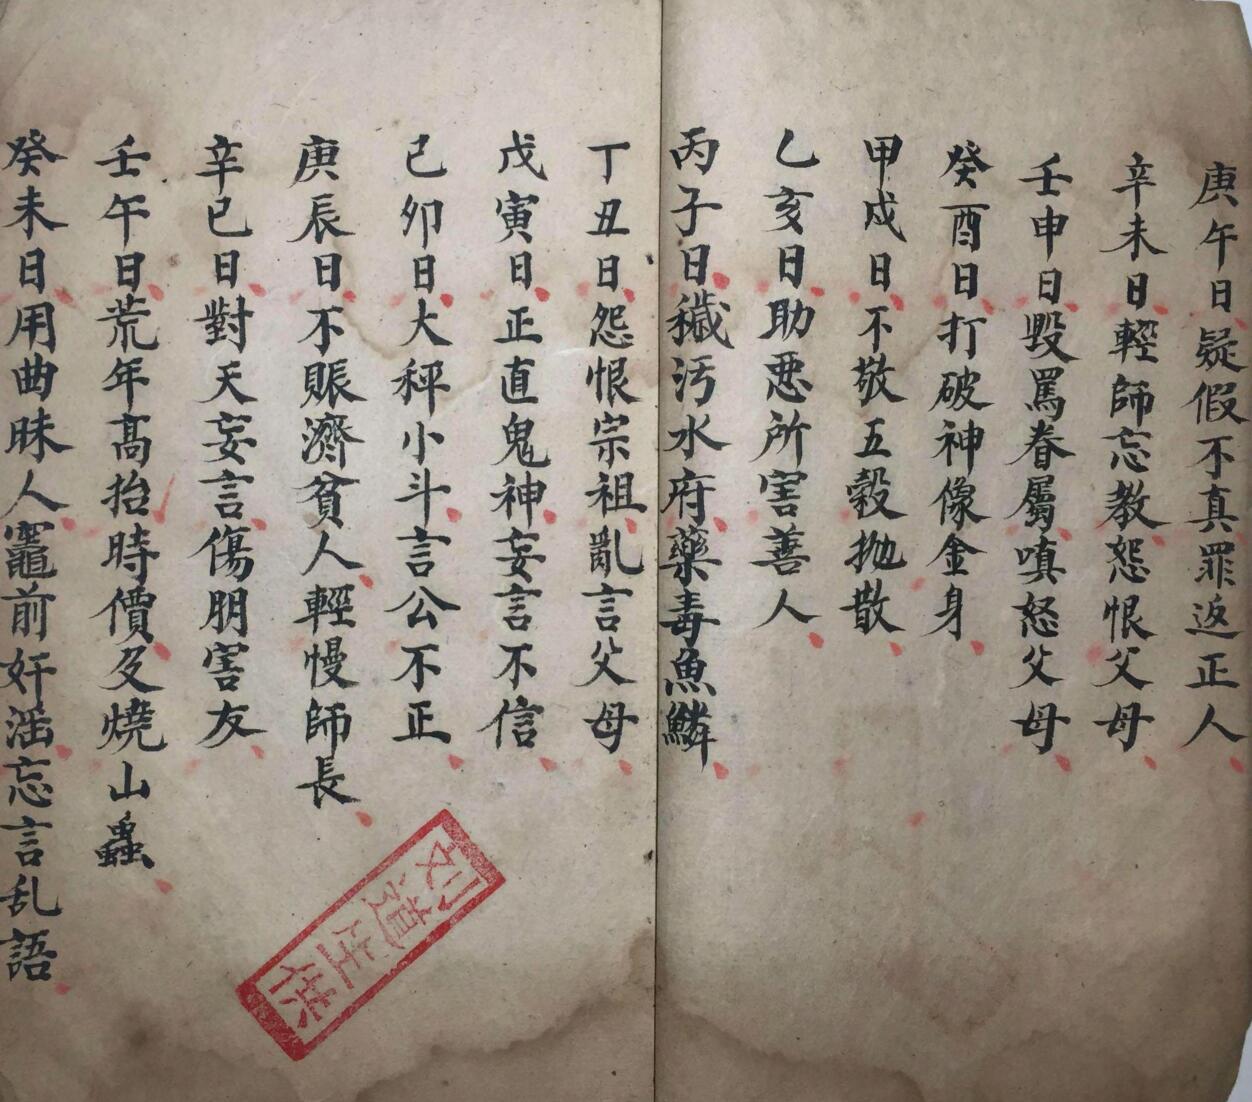 庚午日疑假不真罪返正人
辛未日輕師忘教怨恨父母
壬申日毀罵眷屬嗔怒父母
癸酉日打破神像金身
甲戌日不敬五穀拋散
乙亥日助惡所害善人
丙子日穢污水府藥毒魚鱗
丁丑日怨恨宗祖亂言父母
戊寅日正直鬼神妄言不信
己卯日大秤小斗言公不正
庚辰日不賑濟貧人輕慢師長
辛巳日對天妄言傷朋害友
壬午日荒年高抬時價及燒山蟲
癸未日用曲昧人竈前奸淫忘言乱語